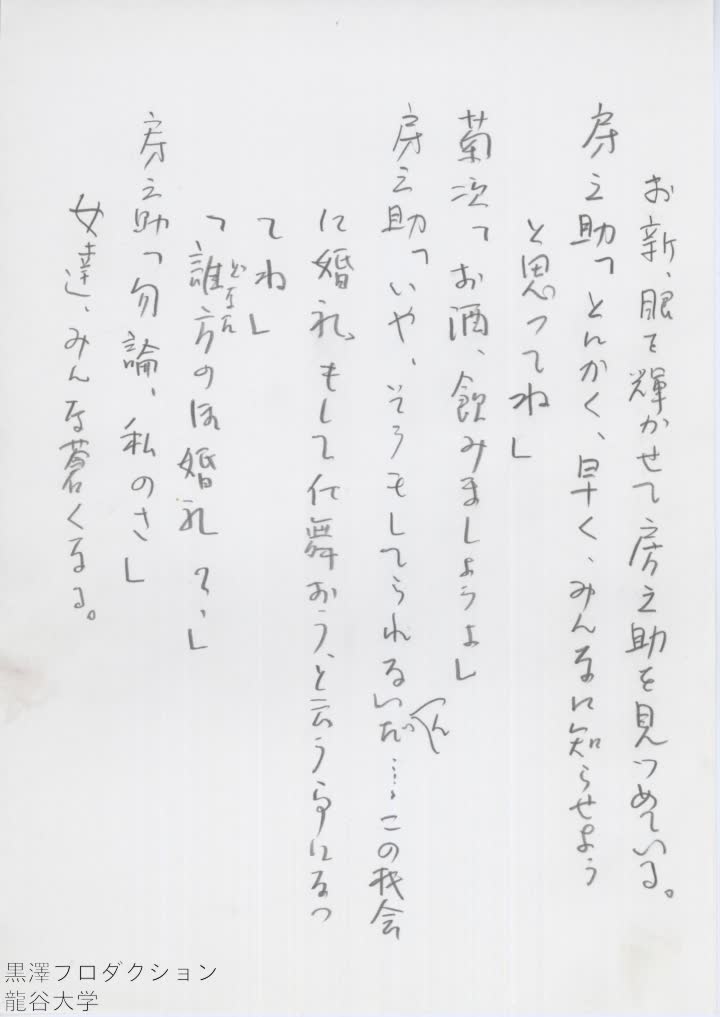 お新、眼を輝かせて房之助を見つめている。
房之助「とにかく、早く、みんなに知らせよう
と思ってね」
菊次「お酒、飲みましょうよ」
房之助「いや、そうもしてられないんだ……この機会
に婚礼もして仕舞おう、と云う事になっ
てね」
「誰方のほ婚礼？、」
どなた
房之助「勿論、私のさ」
女達、みんな蒼くなる。
黒澤プロダクション
龍谷大学